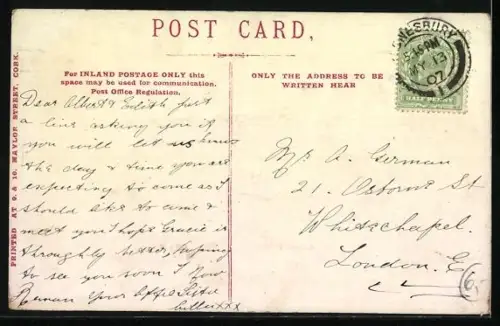 POST CARD,
For INLAND POSTAGE ONLY this
space may be used for communication.
Post Office Regulation.
ONLY THE ADDRESS TO BE
WRITTEN HEAR
PRINTED AT 9. & 10. NAYLOR STREET, CORK.
NESBURY
MY 13
07
HALFPENNY
Dear Albert & Edith just
a line asking you if
you will let us know
the day & time you are
expecting to come as I
should like to come &
meet you I hope Gracie is
throughly better, hoping
to see you soon I now
Remain Your Affe Sister
xxx
Mr A. German
21. Osborne St
Whitechapel.
London. E
6